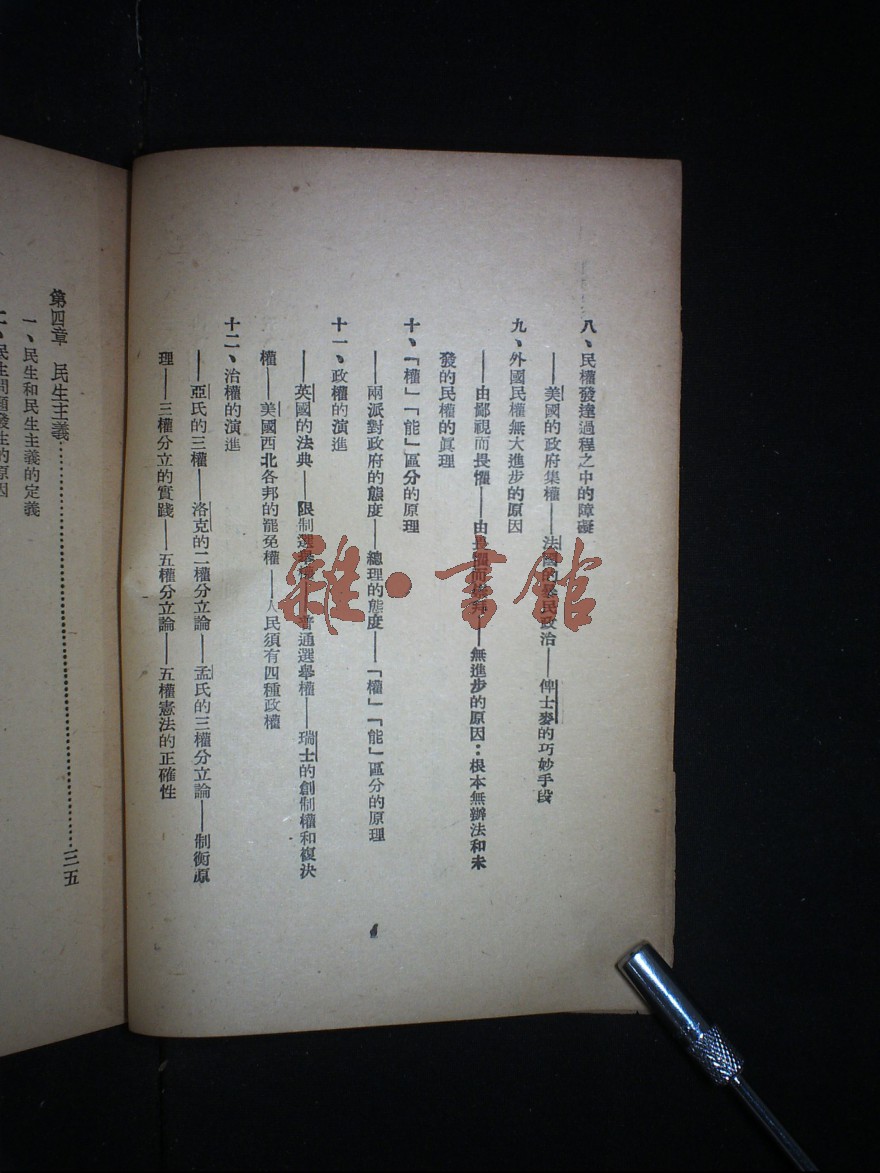 八、民權發達過程之中的障礙
——美國的政府集權——法國的暴民政治——俾士麥的巧妙手段
九、外國民權無大進步的原因
——由鄙視而畏懼——由畏懼而——無進步的原因：根本無辦法和未
發的民權的眞理
十、「權」「能」區分的原理
——兩派對政府的態度——總理的態度——「權」「能」區分的原理
十一、政權的演進
——英國的法典——限制選舉權——普通選舉權——瑞士的創制權和複決
權——美國西北各邦的罷免權——人民須有四種政權
十二、治權的演進
——亞氏的三權——洛克的二權分立論——孟氏的三權分立論——制衡原
理——三權分立的實踐——五權分立論——五權憲法的正確性
第四章 民生主義……三五
一、民生和民生主義的定義
二、民生問題發生的原因
雜·書館